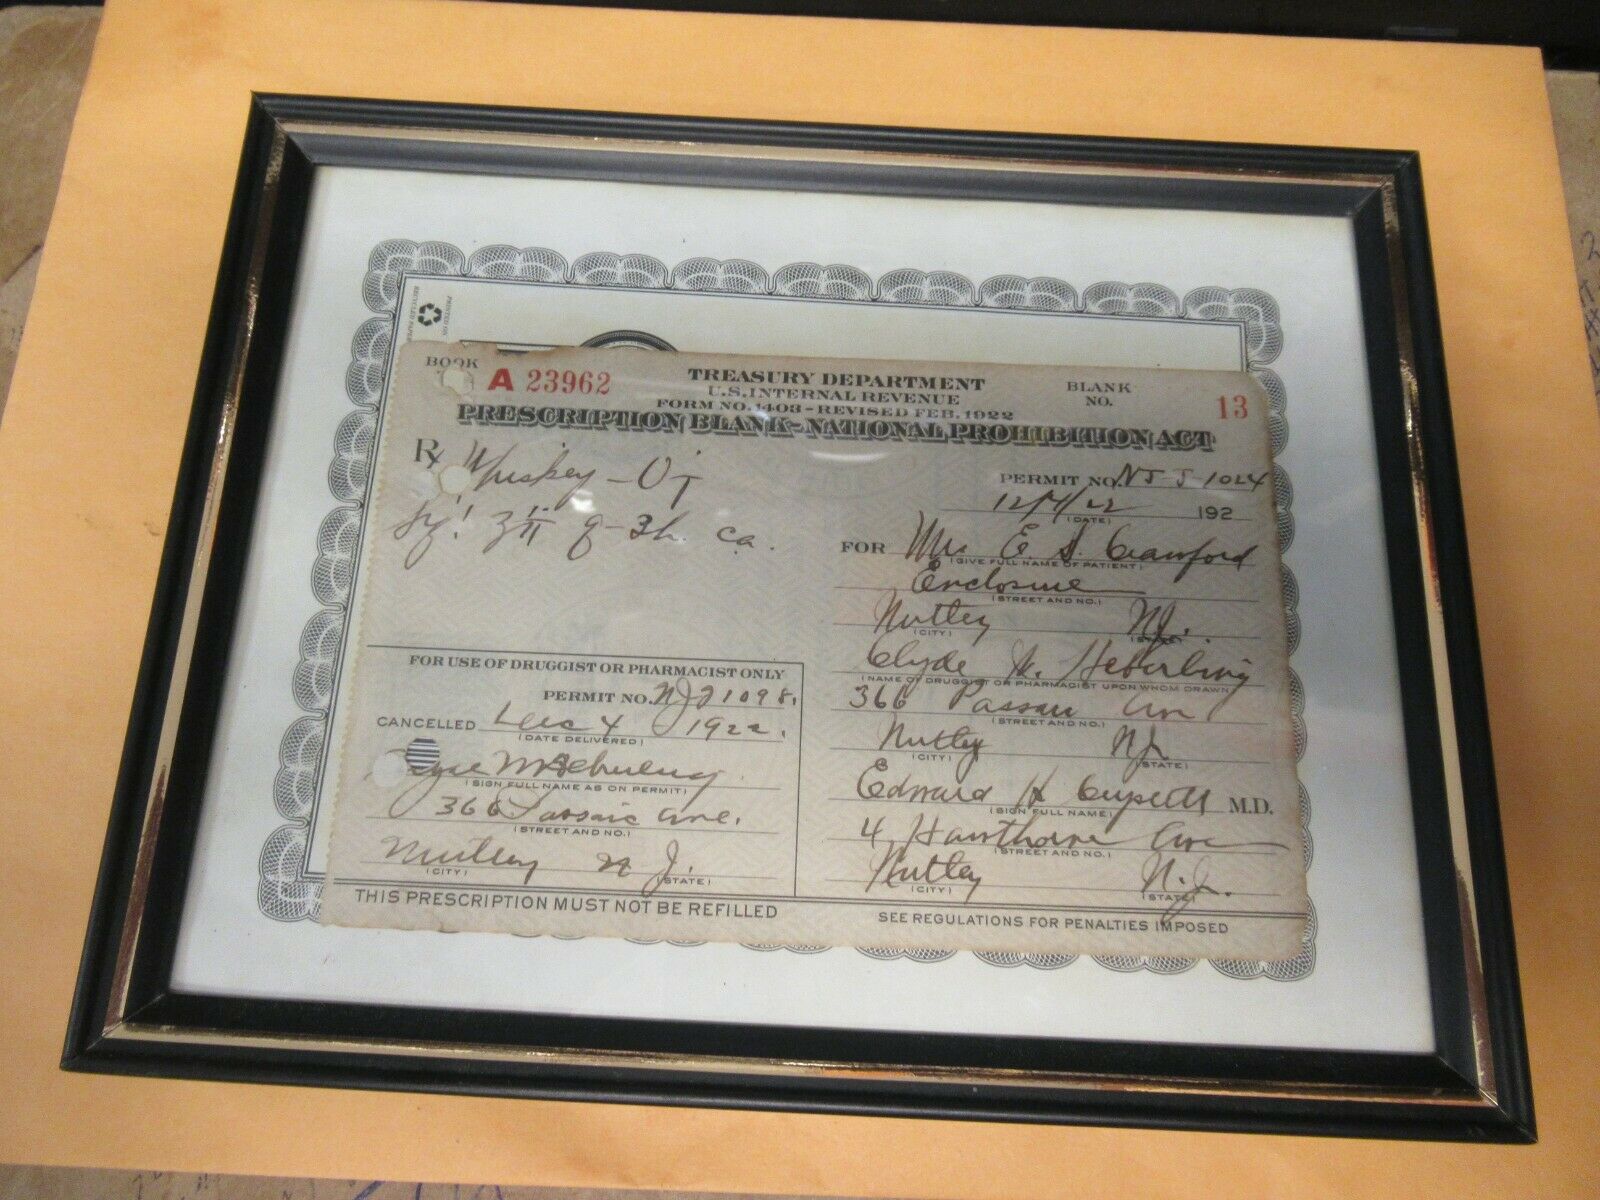 PRINTED ON
RECYCLED PAPER
BOOK
A 23962
TREASURY DEPARTMENT
U.S. INTERNAL REVENUE
FORM NO. 1403 - REVISED FEB. 1922
PRESCRIPTION BLANK - NATIONAL PROHIBITION ACT
BLANK
NO.
13
Rx Whiskey - O
q-3h. ca.
PERMIT NO. NJ-J 1024
12/4/22 192
(DATE)
FOR Mrs E S. Crawford
(GIVE FULL NAME OF PATIENT)
Enclosure
(STREET AND NO.)
Nutley N.J.
(CITY) (STATE)
Clyde Heberling
(NAME OF DRUGGIST OR PHARMACIST UPON WHOM DRAWN)
366 Passaic Ave
(STREET AND NO.)
Nutley N.J.
(CITY) (STATE)
Edward H M.D.
(SIGN FULL NAME)
4 Hawthorne Ave
(STREET AND NO.)
Nutley N.J.
(CITY) (STATE)
FOR USE OF DRUGGIST OR PHARMACIST ONLY
PERMIT NO. 1098.
CANCELLED Dec 4 1922.
(DATE DELIVERED)
(SIGN FULL NAME AS ON PERMIT)
366 Passaic Ave.
(STREET AND NO.)
Nutley N J.
(CITY) (STATE)
THIS PRESCRIPTION MUST NOT BE REFILLED
SEE REGULATIONS FOR PENALTIES IMPOSED